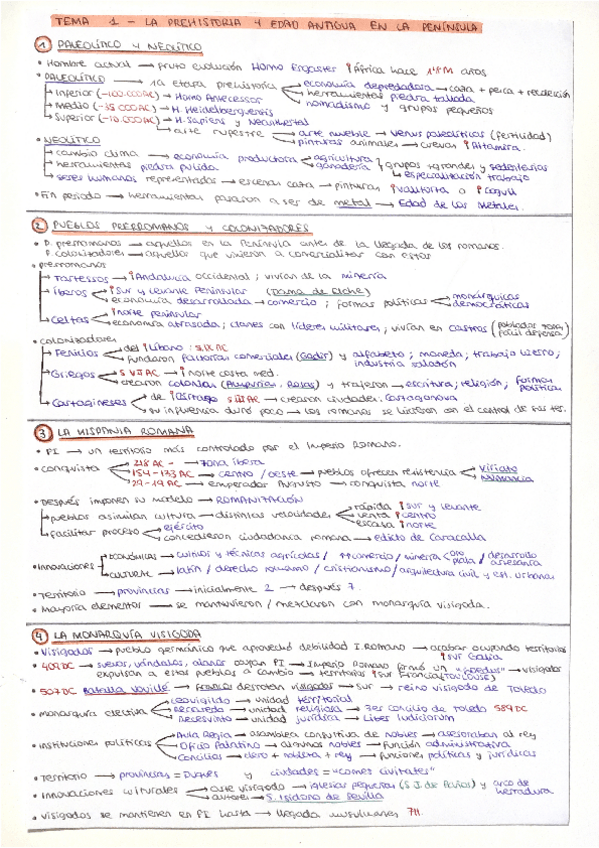 TEMA 1 - LA PREHISTORIA Y EDAD ANTIGUA EN LA PENÍNSULA
1 PALEOLÍTICO Y NEOLÍTICO
• Hombre actual → fruto evolución Homo Ergaster África hace
• PALEOLÍTICO → 1a etapa prehistoria economía depredadora → caza + pesca + recolección
herramientas piedra tallada
nomadismo y grupos pequeños
Inferior → Homo Antecessor
Medio → H. Heidelbergensis
Superior → H. Sapiens y Neanderthal
arte rupestre → arte mueble → Venus paleolíticas (fertilidad)
pinturas animales → cuevas Altamira.
• NEOLÍTICO
cambio clima → economía productora → agricultura
ganadería
grupos + grandes y sedentarios
especialización trabajo
herramientas piedra pulida
seres humanos representados → escenas caza → pinturas Valltorta o Cogull
• Fin período → herramientas pasaron a ser de metal → Edad de los Metales.
2 PUEBLOS PRERROMANOS Y COLONIZADORES
• P. prerromanos → aquellos en la Península antes de la llegada de los romanos.
P. colonizadores → aquellos que vinieron a comercializar con estos
• prerromanos
Tartessos → Andalucía occidental; vivían de la minería
Íberos → Sur y Levante Peninsular (Dama de Elche)
economía desarrollada → comercio; formas políticas → monárquicas
democráticas
Celtas → norte peninsular
economía atrasada; clanes con líderes militares; vivían en castros (poblados fácil defensa)
• colonizadores
Fenicios → del Líbano: S.IX AC
fundaron factorías comerciales (Gadir) y alfabeto; moneda; trabajo hierro; industria salazón
Griegos → norte costa med.
crearon colonias (Ampurias, Rosas) y trajeron → escritura; religión; formas políticas
Cartagineses → de Cartago → crearon ciudades: Cartagonova
su influencia duró poco → los romanos se hicieron con el control de sus ter.
3 LA HISPANIA ROMANA
• PI → un territorio más controlado por el Imperio Romano.
• conquista → 218 AC → zona íbera
154-133 AC → centro / oeste → pueblos ofrecen resistencia → Viriato
Numancia
29-19 AC → emperador Augusto → conquista norte
• Después imponen su modelo → ROMANIZACIÓN
pueblos asimilan cultura → distintas velocidades → rápida sur y levante
lenta centro
escasa norte
facilitar proceso → ejército
concedieron ciudadanía romana → edicto de Caracalla
• Innovaciones → ECONÓMICAS → cultivos y técnicas agrícolas / ++comercio / minería oro plata / desarrollo artesanía
CULTURALES → latín / derecho romano / cristianismo / arquitectura civil y est. urbana.
• Territorio → provincias → inicialmente 2 → después 7.
• Mayoría elementos → se mantuvieron / mezclaron con monarquía visigoda.
4 LA MONARQUÍA VISIGODA
• Visigodos → pueblo germánico que aprovechó debilidad I. Romano → acabar ocupando territorios sur Galia
• 409 DC → suevos, vándalos, alanos ocupan PI → Imperio Romano firmó un "foedus" → visigodos
expulsan a estos pueblos a cambio → territorios sur Francia (TOULOUSE)
• 507 DC Batalla Vouillé → francos derrotan visigodos → sur → reino visigodo de Toledo
• monarquía electiva → Leovigildo → unidad territorial
Recaredo → unidad religiosa → 3er Concilio de Toledo 589 DC
Recesvinto → unidad jurídica → Liber Iudiciorum
• instituciones políticas → Aula Regia → asamblea consultiva de nobles → asesoraban al rey
Oficio Palatino → algunos nobles → función administrativa
Concilios → clero + nobleza + rey → funciones políticas y jurídicas
• Territorio → provincias = Duques y ciudades = "comes civitates"
• Innovaciones culturales → arte visigodo → iglesias pequeñas (S.J. de Baños) y arco de herradura
autores → S. Isidoro de Sevilla
• visigodos se mantienen en PI hasta → llegada musulmanes 711.